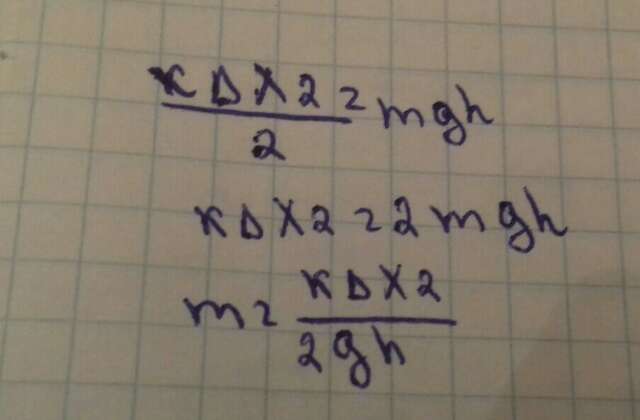 кΔx2/2 = mgh
кΔx2 = 2mgh
m = кΔx2/2gh